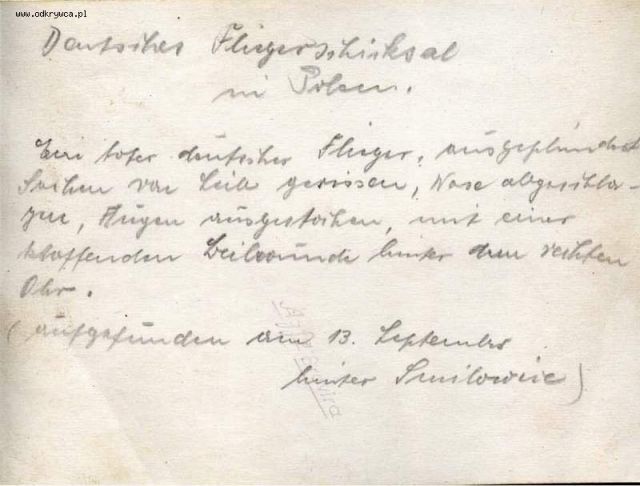 www.odkrywca.pl
Deutsches Fliegerschicksal
in Polen.
Ein toter deutscher Flieger, ausgeplündert
Sachen von Leib gerissen, Nase abgeschla-
gen, Augen ausgestochen, mit einer
klaffenden Beilwunde hinter dem rechten
Ohr.
(aufgefunden am 13. September
hinter Smilowice)